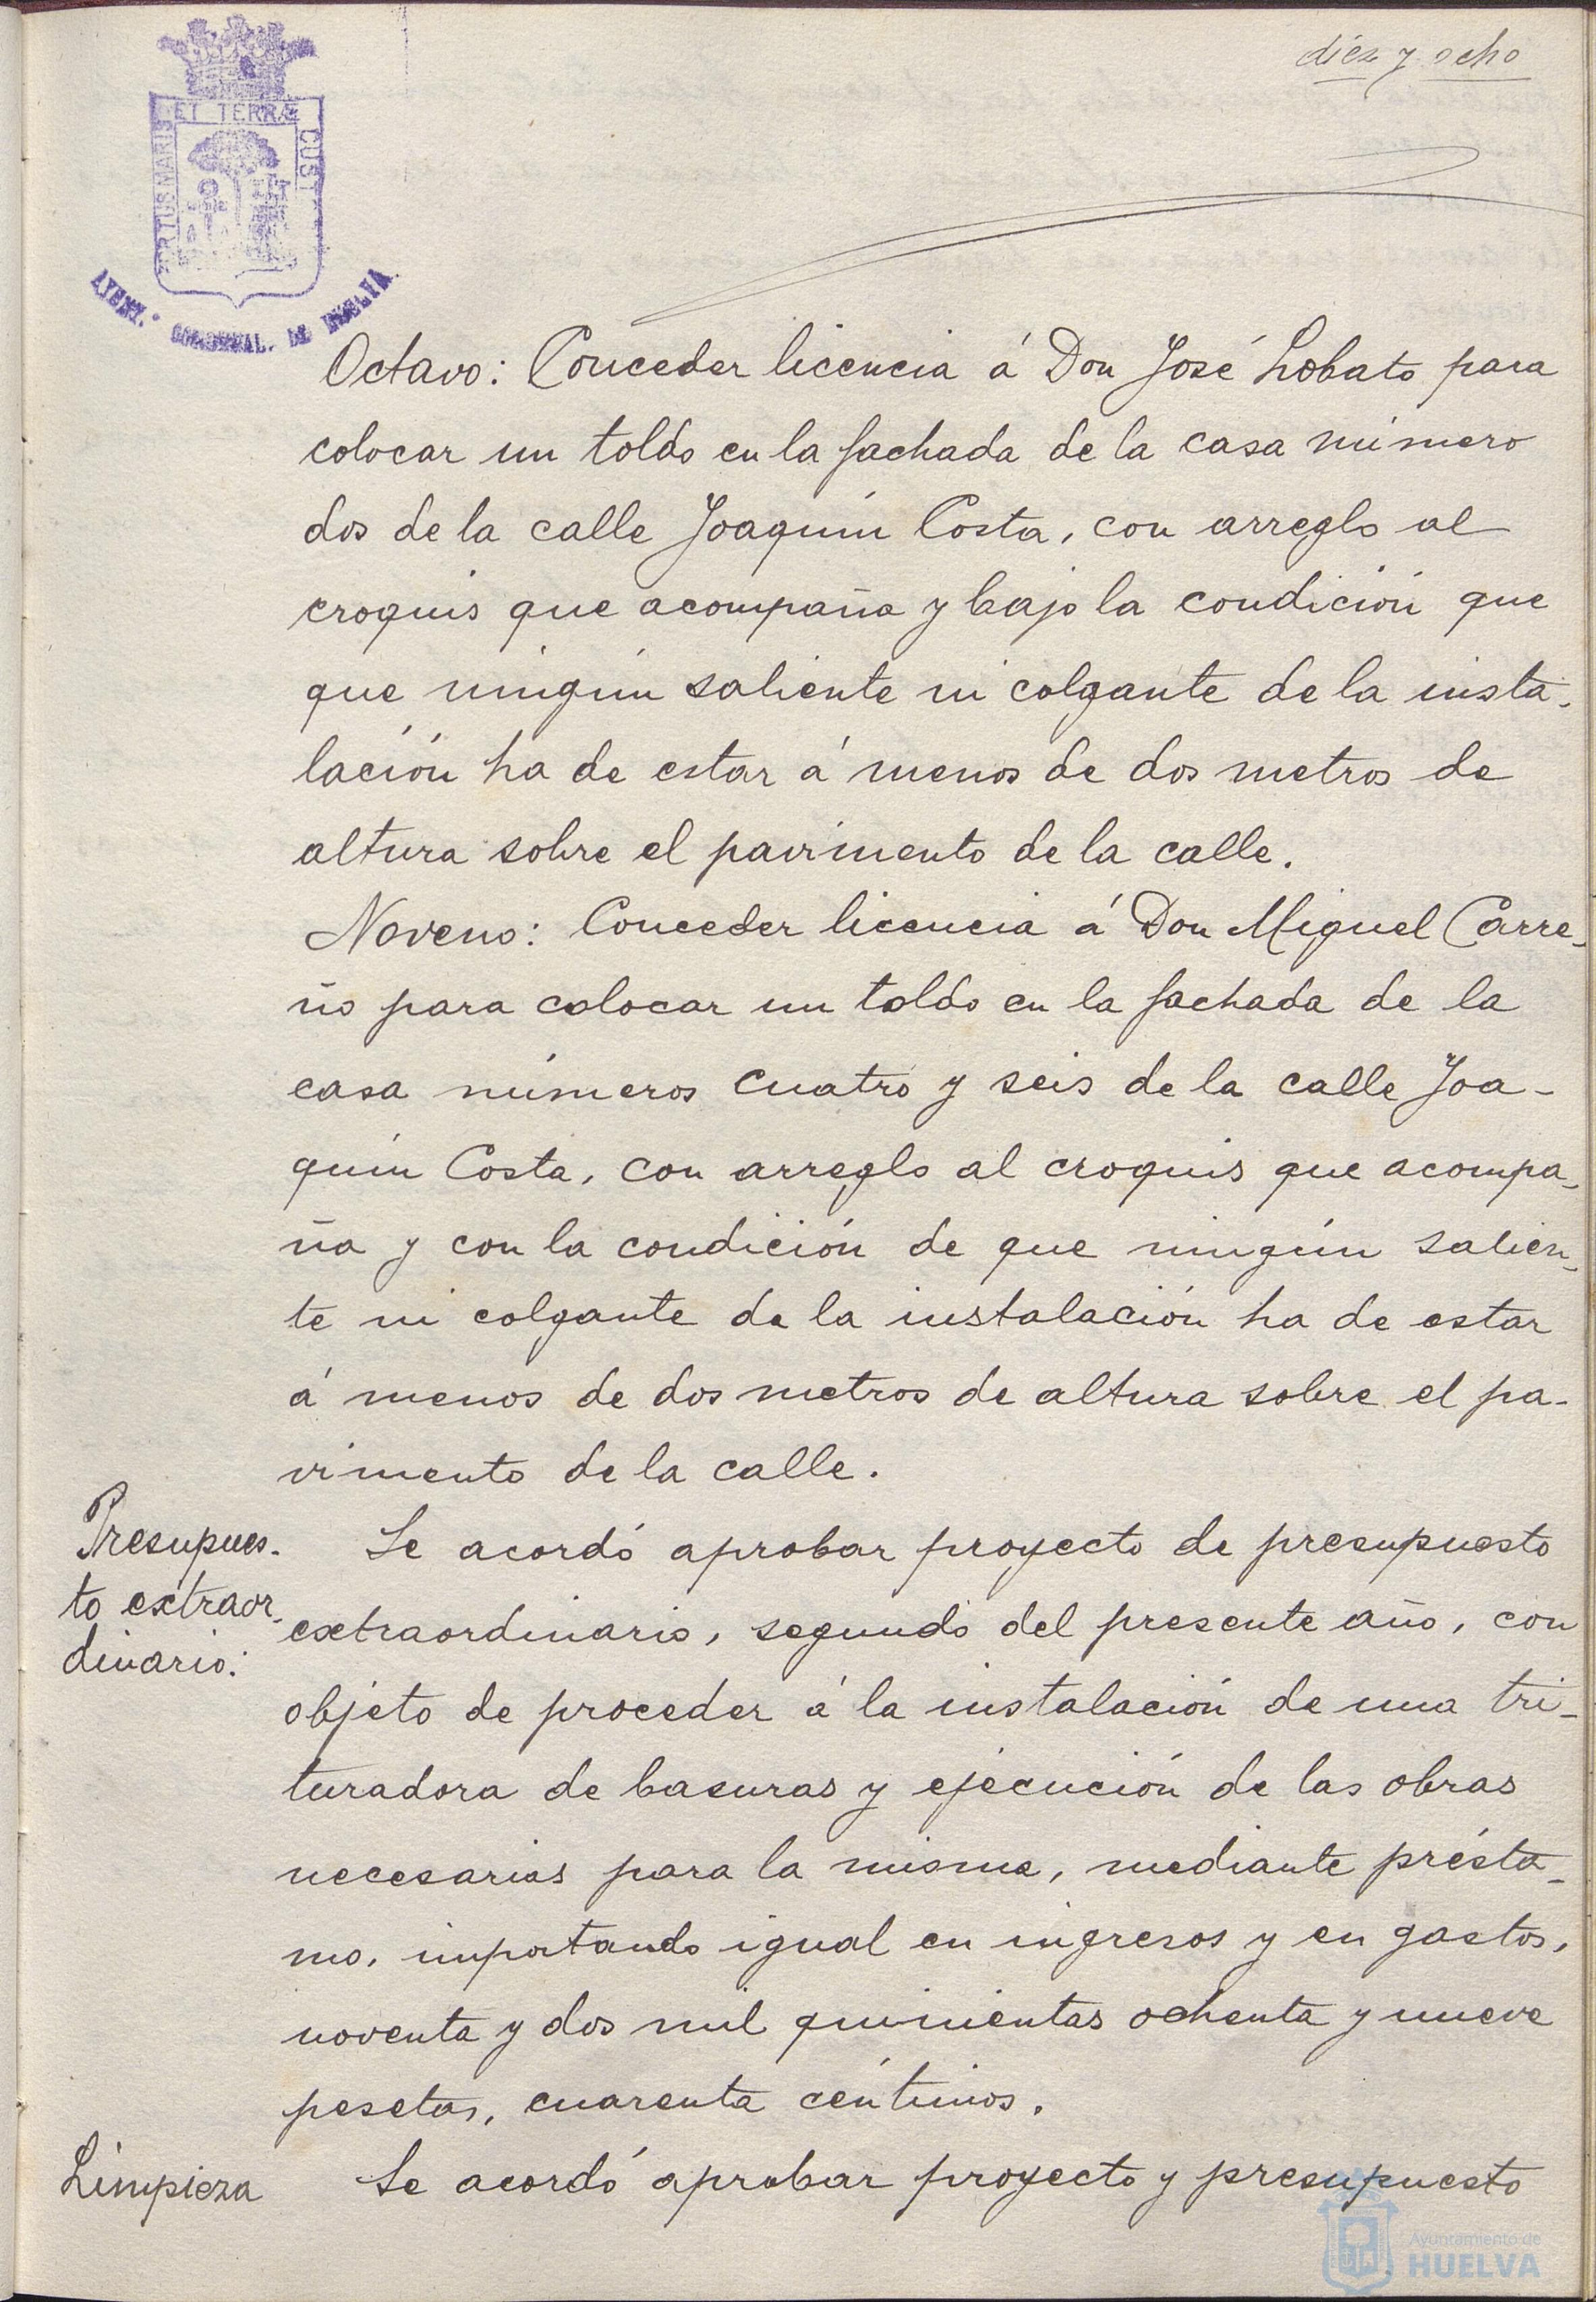 diez y ocho
ET TERRÆ
PORTUS MARIS
CUST
AYUNT.º CONSTITUCIONAL. DE HUELVA
Octavo: Conceder licencia á Don José Lobato para
colocar un toldo en la fachada de la casa número
dos de la calle Joaquín Costa, con arreglo al
croquis que acompaña y bajo la condición que
que ningún saliente ni colgante de la insta-
lación ha de estar á menos de dos metros de
altura sobre el pavimento de la calle.
Noveno: Conceder licencia á Don Miguel Carre-
ño para colocar un toldo en la fachada de la
casa números cuatro y seis de la calle Joa-
quín Costa, con arreglo al croquis que acompa-
ña y con la condición de que ningún salien-
te ni colgante de la instalación ha de estar
á menos de dos metros de altura sobre el pa-
vimento de la calle.
Presupues-
to extraor-
dinario:
Se acordó aprobar proyecto de presupuesto
extraordinario, segundo del presente año, con
objeto de proceder á la instalación de una tri-
turadora de basuras y ejecución de las obras
necesarias para la misma, mediante présta-
mo, importando igual en ingresos y en gastos,
noventa y dos mil quinientas ochenta y nueve
pesetas, cuarenta céntimos.
Limpieza
Se acordó aprobar proyecto y presupuesto
Ayuntamiento de
HUELVA